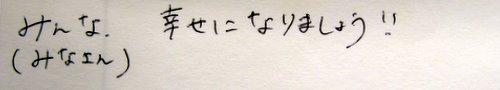 みんな. 幸せになりましょう!!
(みなさん)